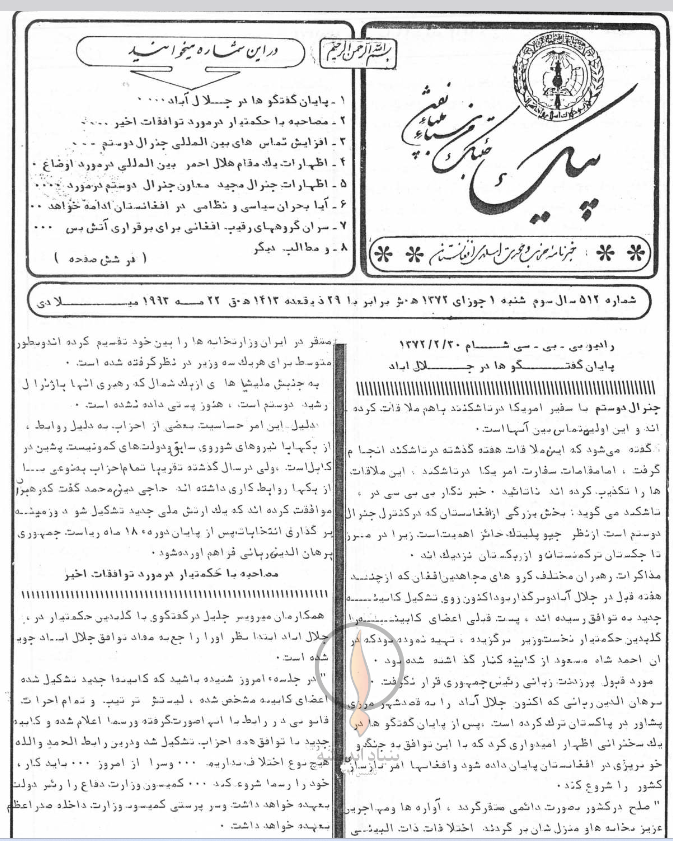 بسم الله الرحمن الرحیم
پیک
خبرنامهٔ حزب وحدت اسلامی افغانستان
در این شماره میخوانید
۱ ـ پایان گفتگو ها در جـــلال آباد ۰۰۰۰
۲ ـ مصاحبه با حکمتیار درمورد توافقات اخیر ۰۰۰۰
۳ ـ افزایش تماس های بین المللی جنرال دوستم ۰۰۰
۴ ـ اظهارات یک مقام هلال احمر بین المللی درمورد اوضاع ۰
۵ ـ اظهارات جنرال مجید معاون جنرال دوستم درمورد ۰۰۰۰
۶ ـ آیا بحران سیاسی و نظامی در افغانستان ادامه خواهد ۰۰
۷ ـ سران گروههای رقیب افغانی برای برقراری آتش بس ۰۰۰
۸ ـ و مطالب دیگر
( در شش صفحه )
شماره ۵۱۲ سال سوم شنبه ۱ جوزای ۱۳۷۲ ه‍ ش برابر با ۲۹ ذیقعده ۱۴۱۳ ه‍ ق ۲۲ مــه ۱۹۹۳ میـــــلادی
رادیو بی ـ بی ـ سی شـــام ۱۳۷۲/۲/۳۰
پایان گفتـــــگو ها در جــــــلال اباد
جنرال دوستم با سفیر امریکا درتاشکند باهم ملاقات کرده
اند و این اولین تماس بین آنها است ۰
گفته می‌شود که این ملاقات هفته گذشته درتاشکند انجام
گرفت ، اما مقامات سفارت امریکا درتاشکند ، این ملاقات
ها را تکذیب کرده اند تائید ۰ خبر نگار بی بی سی در
تاشکند می گوید : بخش بزرگی ازافغانستان که درکنترل جنرال
دوستم است ازنظر جیوپلیتک حائز اهمیت است زیرا در مرز
تاجکستان ترکمنستان و ازبکستان نزدیک اند ۰
مذاکرات رهبران مختلف گروهای مجاهدین افغان که ازچنـــد
هفته قبل در جلال آباد برگذار بود اکنون روی تشکیل کابینــــه
جدید به توافق رسیده اند ، پست قبلی اعضای کابینــــه را
گلبدین حکمتیار نخست وزیر برگزیده ، تهیه نموده بود که در
ان احمد شاه مسعود از کابینه کنار گذاشته شده بود ۰
مورد قبول برهان ربانی رئیس جمهوری قرار نگرفت ۰
برهان الدین ربانی که اکنون جلال آباد را به قصد شهر مرزی
پشاور در پاکستان ترک کرده است ، پس از پایان گفتگو ها در
یک سخنرانی اظهار امیدواری کرد که با این توافق به جنگ و
خو نریزی در افغانستان پایان داده شود و افغانها امر بازسازی
کشور را شروع کند ۰
" صلح درکشور بصورت دائمی مستقر گردد ، آواره ها ومهاجرین
عزیز بخانه هاو منزل شان بر گردند اختلافات ذات البینـــی
مستقر در ایران وزارتخانه ها را بین خود تقسیم کرده اند وبطور
متوسط برای هریک سه وزیر در نظر گرفته شده است ۰
به جنبش ملیشا ها ی ازبک شمال که رهبری انها باژنرال
رشید دوستم است ، هنوز پستی داده نشده است ۰
دلیل این امر حساسیت بعضی از احزاب به دلیل روابط
ازبکها با نیروهای شوروی سابق و دولت‌های کمونیست پشین در
کابل است ، ولی در سال گذشته تقریبا تمام احزاب بنوعی بــا
ازبکها روابط کاری داشته اند حاجی دین محمد گفت که رهبران
موافقت کرده اند که یک ارتش ملی جدید تشکیل شود و زمینه
بر گذاری انتخابات پس از پایان دوره ۱۸۰ ماه ریاست جمهوری
برهان الدین ربانی فراهم آورده شود ۰
مصاحبه با حکمتیار درمورد توافقات اخیر
همکارمان میرویس جلیل درگفتگوی با گلبدین حکمتیار در
جلال اباد ابتدا نظر اورا راجع به مفاد توافق جلال اباد جویا
شده است ۰
" در جلسه امروز شنیده باشید که کابینه جدید تشکیل شده
اعضای کابینه مشخص شده ، لیستش ترتیب و تمام اجرات
قانونی در رابطه با انها صورت گرفته و رسما اعلام شده و کابینه
جدید با توافق همه احزاب تشکیل شد و درین رابطه الحمد والله
هیچ نوع اختلاف نداریم ۰۰۰ وسرا از امروز ۰۰۰ باید کار
خود را رسما شروع کند ۰۰۰ کمیسون وزارت دفاع را رئیر دولت
بعهده خواهد داشت وسر پرستی کمیسون وزارت داخله صدراعظم
بعهده خواهد داشت ۰
بنیاد اندیشه